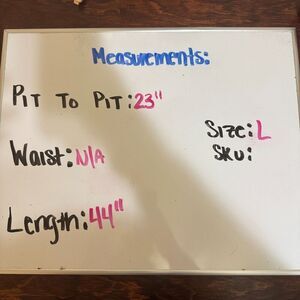 Measurements:
PIT TO PIT: 23"
Waist: N/A
Size: L
SKU:
Length: 44"